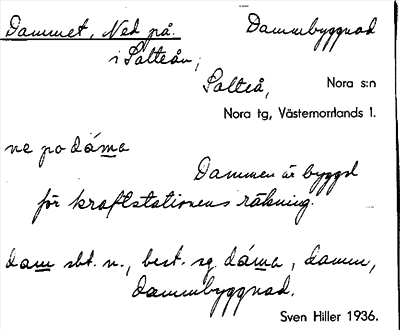 Dammet, Ned på. Dammbyggnad
i Salteån,
Salteå, Nora s:n
Nora tg, Västernorrlands l.
ne po dáma
Dammen är byggd
för kraftstationens räkning.
dam sbt. n., best. sg. dáma, damm,
dammbyggnad.
Sven Hiller 1936.